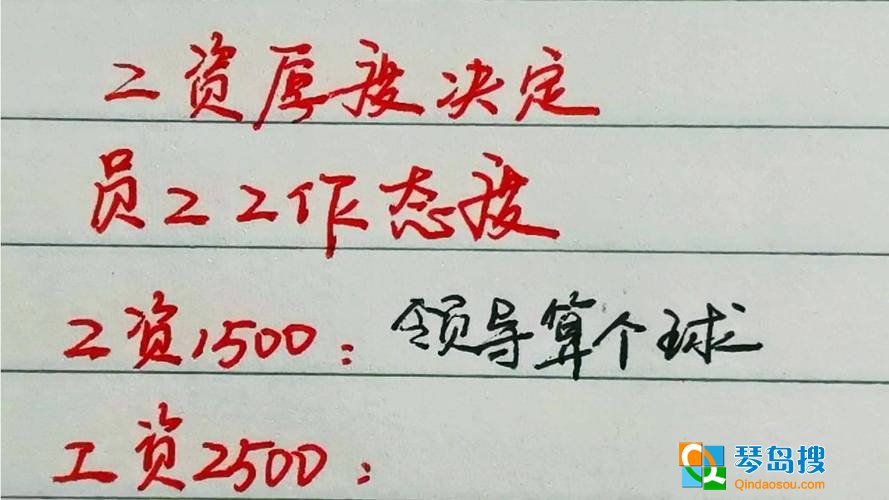 工资厚度决定
员工工作态度
工资1500：领导算个球
工资2500：
琴岛搜
Qindaosou.com